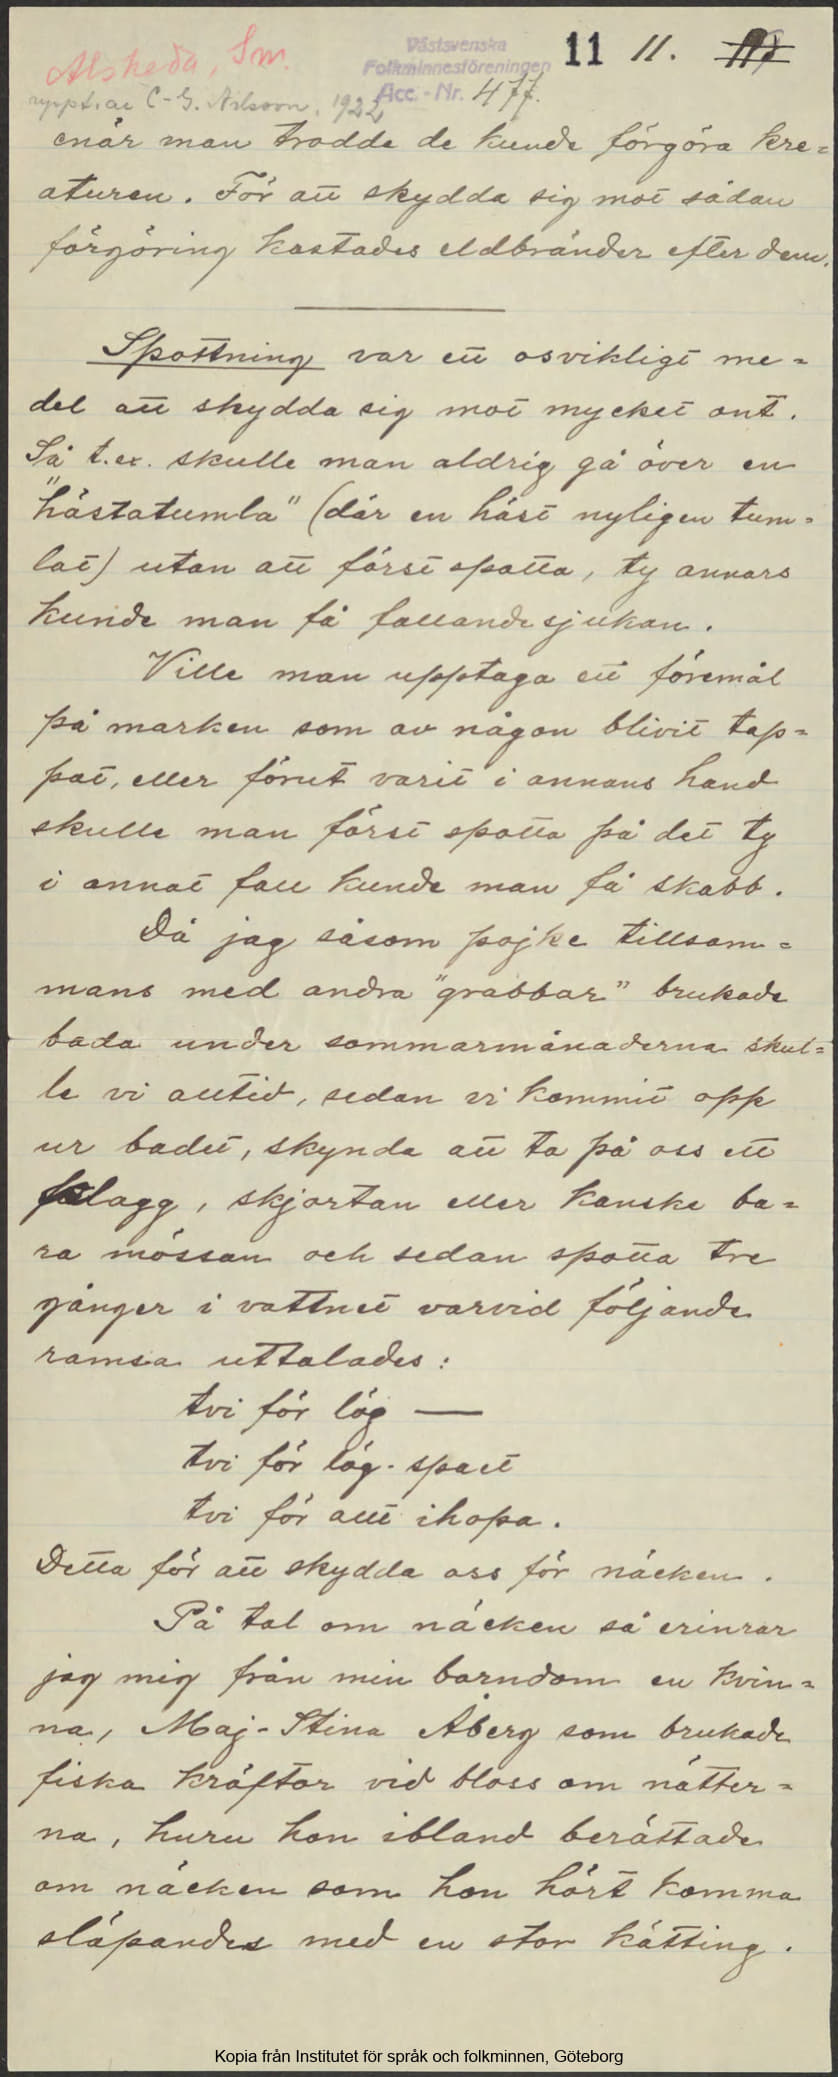 Alsheda, Sm.
Västsvenska
Folkminnesföreningen
Acc.-Nr. 477.
11 11.
uppt. av C-G. Nilsson, 1922
enär man trodde de kunde förgöra kre=
aturen. För att skydda sig mot sådan
förgöring kastades eldbränder efter dem.
Spottning var ett osvikligt me=
del att skydda sig mot mycket ont.
Så t.ex. skulle man aldrig gå över en
"hästatumla" (där en häst nyligen tum=
lat) utan att först spotta, ty annars
kunde man få fallandesjukan.
Ville man upptaga ett föremål
på marken som av någon blivit tap=
pat, eller förut varit i annans hand
skulle man först spotta på det ty
i annat fall kunde man få skabb.
Då jag såsom pojke tillsam=
mans med andra "grabbar" brukade
bada under sommarmånaderna skul=
le vi alltid, sedan vi kommit opp
ur badet, skynda att ta på oss ett
plagg, skjortan eller kanske ba=
ra mössan och sedan spotta tre
gånger i vattnet varvid följande
ramsa uttalades:
tvi för lög —
tvi för lög-spott
tvi för allt ihopa.
Detta för att skydda oss för näcken.
På tal om näcken så erinrar
jag mig från min barndom en kvin=
na, Maj-Stina Åberg som brukade
fiska kräftor vid bloss om nätter=
na, huru hon ibland berättade
om näcken som hon hört komma
släpandes med en stor kätting.
Kopia från Institutet för språk och folkminnen, Göteborg